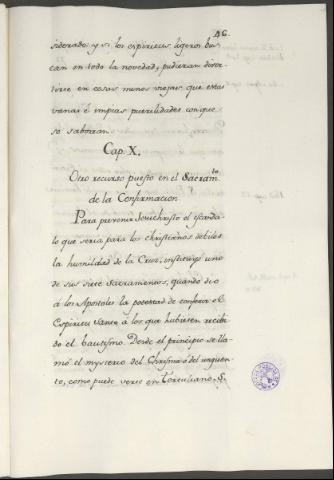 46.
siderado: y si los espiritus ligeros bus
can en todo la novedad, pudieran diver
tirse en cosas menos viejas que estas
vanas è impias puerilidades con que
se saborean.
Cap. X.
Otro recurso puesto en el Sacramto.
de la Confirmacion
Para prevenir Jesuchristo el escanda-
lo que seria para los christianos debiles
la humildad de la Cruz, instituyó uno
de sus siete Sacramentos, quando dió
á los Apostoles la potestad de conferir el
Espiritu Santo á los que hubiesen recibi
do el bautismo. Desde el principio se lla-
mó el mysterio del Chrisma ó del unguen
to, como puede verse en Tertuliano, S.